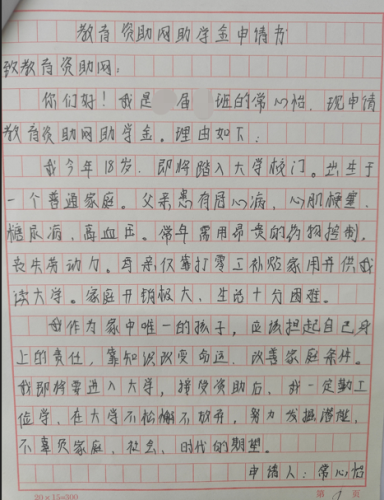 教育资助网助学金申请书
致教育资助网：
你们好！我是 届 班的常心怡，现申请
教育资助网助学金。理由如下：
我今年18岁，即将踏入大学校门。出生于
一个普通家庭。父亲患有冠心病，心肌梗塞，
糖尿病，高血压。常年需用昂贵的药物控制，
丧失劳动力。母亲仅靠打零工补贴家用并供我
读大学。家庭开销极大、生活十分困难。
我作为家中唯一的孩子，应该担起自己身
上的责任，靠知识改变命运、改善家庭条件。
我即将要进入大学，接受资助后，我一定勤工
俭学，在大学不松懈不放弃，努力发掘潜能，
不辜负家庭、社会、时代的期望。
申请人：常心怡
20×15=300 第 1 页